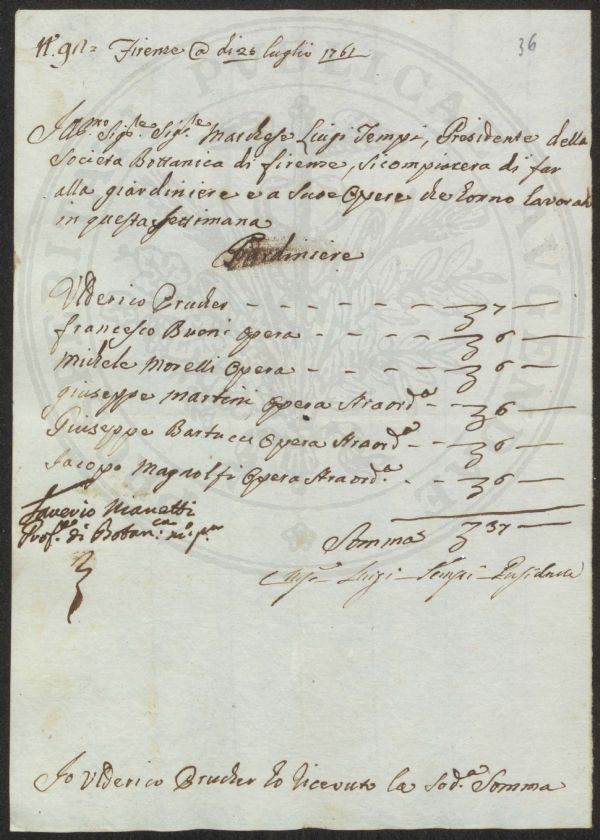 36
N.° 91= Firenze @ dì 28 luglio 1761
Ill.mo Sig.re Sig.re Marchese Luigi Tempi, Presidente della
Società Bottanica di firenze, Si compiacera di far
alla giardiniere e a Sue Opere che Sorno Lavorato
in questa Settimana
Giardiniere
Ulderico Prucher - - - - - - 7 —
francesco Buoni Opera - - - - 6 —
Michele Morelli Opera - - - - 6 —
giuseppe Martini Opera Straord.a - - 6 —
Giuseppe Bartucci Opera Straord.a - 6 —
Jacopo Magnolfi Opera Straord.a - 6 —
Saverio Manetti
Prof.re di Botan.ca m.o p.a
Somma 37 —
Luigi Tempi Presidente
Io Ulderico Prucher ho ricevuto la Sod.a Somma
PUBLICA